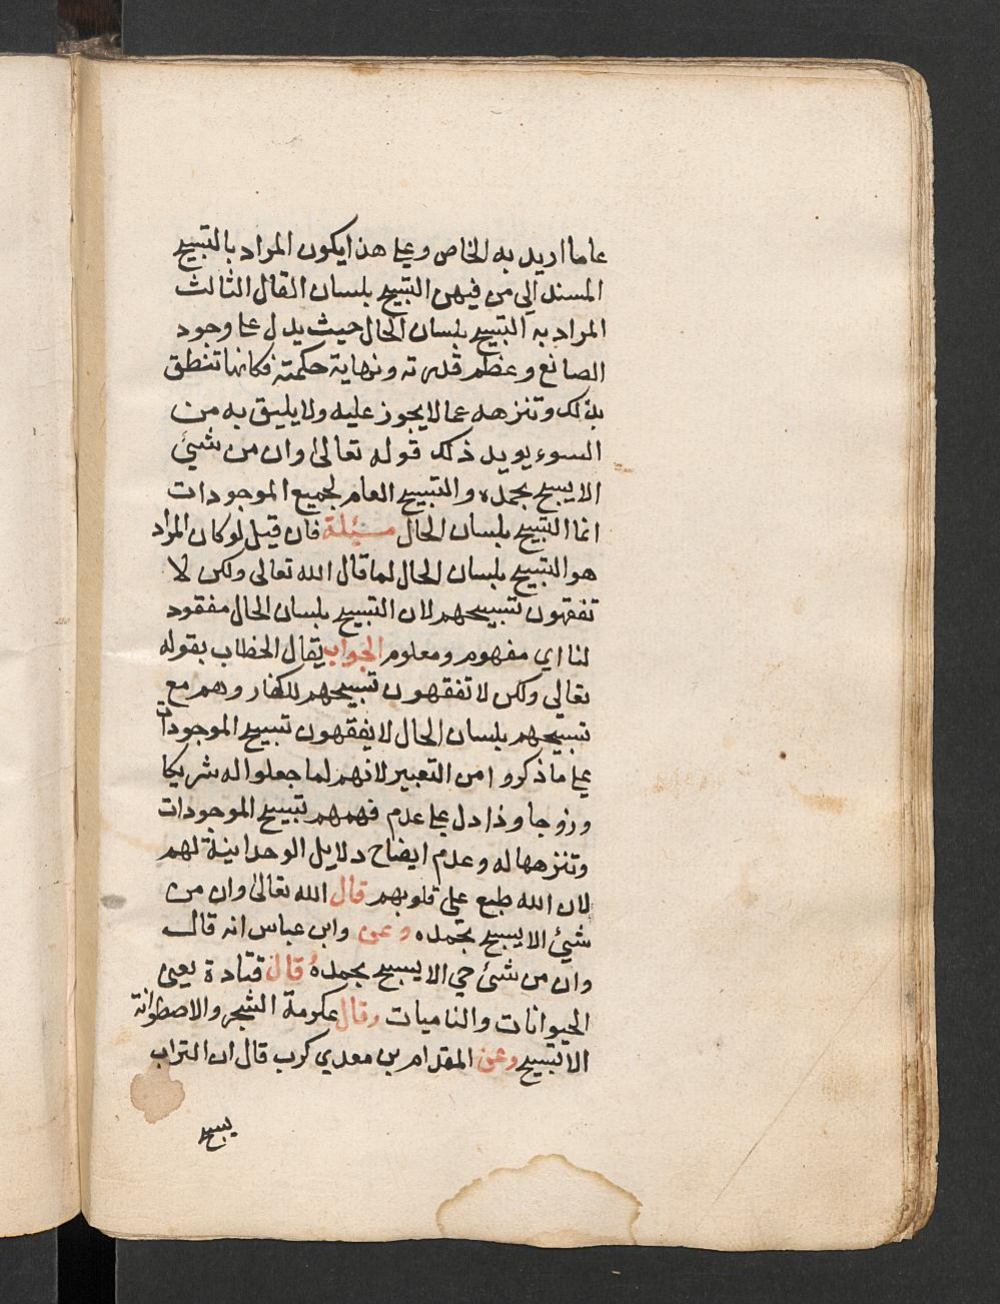 عاما اريد به الخاص وعلى هذا يكون المراد بالتسبيح
المسند الى من فيهن التسبيح بلسان القال الثالث
المراد به التسبيح بلسان الحال حيث يدل على وجود
الصانع وعظم قدرته ونهاية حكمته فكانها تنطق
بذلك وتنزهه عما لا يجوز عليه ولا يليق به من
السوء يويد ذلك قوله تعالى وان من شيئ
الا يسبح بحمده والتسبيح العام لجميع الموجودات
انما التسبيح بلسان الحال مسئلة فان قيل لو كان المراد
هو التسبيح بلسان الحال لما قال الله تعالى ولكن لا
تفقهون تسبيحهم لان التسبيح بلسان الحال مفقود
لنا اي مفهوم ومعلوم الجواب يقال الخطاب بقوله
تعالي ولكن لا تفقهون تسبيحهم للكفار وهم مع
تسبيحهم بلسان الحال لا يفقهون تسبيح الموجودات
على ما ذكروا من التعبير لانهم لما جعلوا له شريكا
وزوجا وذا دل على عدم فهمهم تسبيح الموجودات
وتنزهها له وعدم ايضاح دلايل الوحدانية لهم
لان الله طبع على قلوبهم قال الله تعالى وان من
شيئ الا يسبح بحمده وعن وابن عباس انه قال
وان من شيئ حي الا يسبح بحمده قال قتادة يعني
الحيوانات والناميات وقال عكرمة الشجر والاصطوانة
الا تسبيح وعن المقدام بن معدي كرب قال ان التراب
يسبح